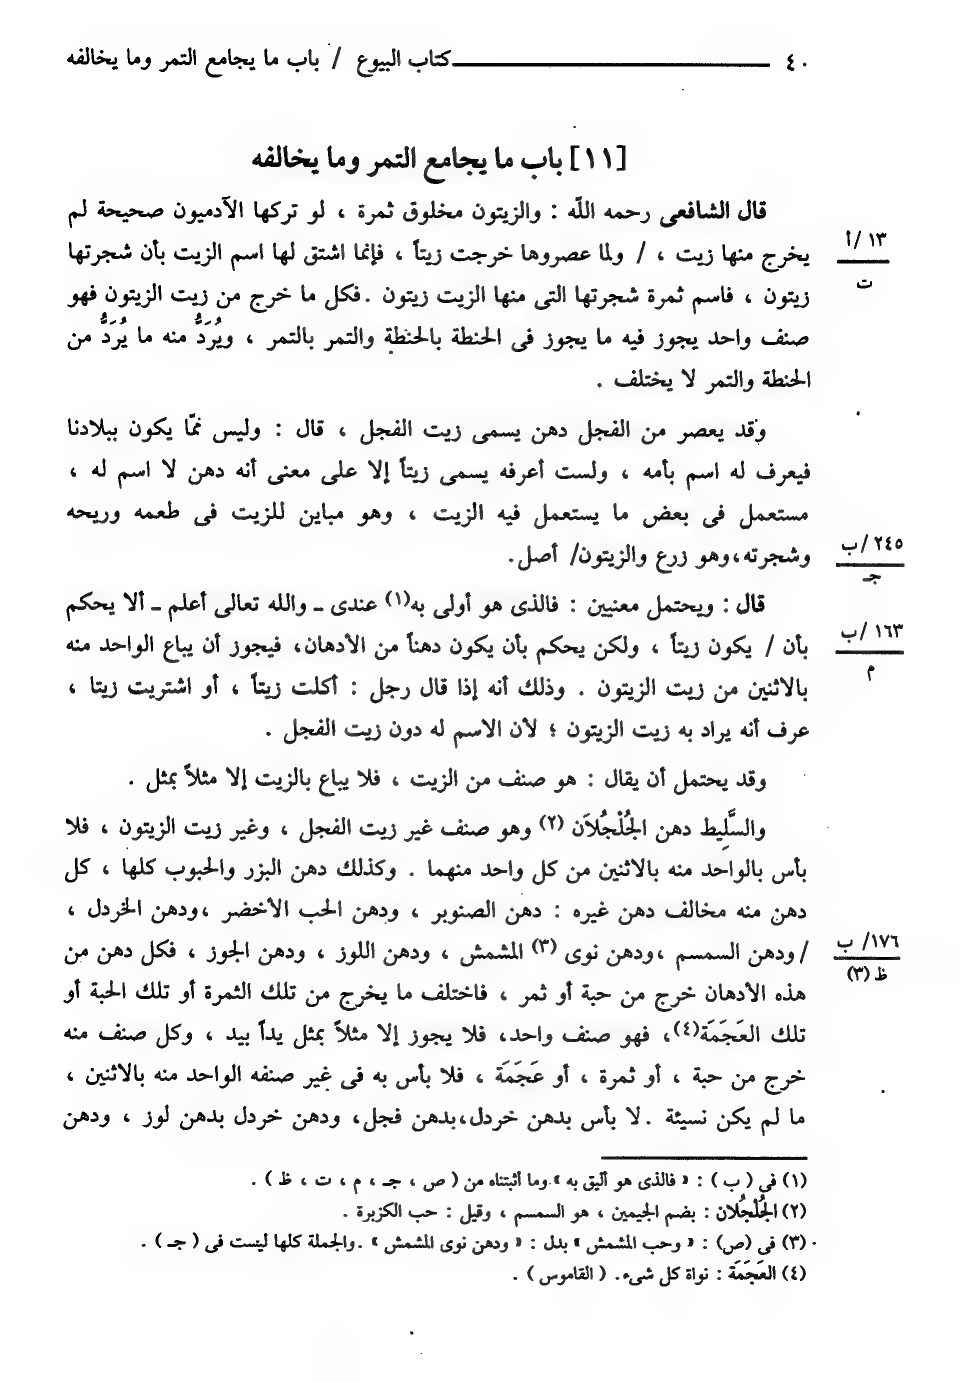 ٤٠ كتاب البيوع / باب ما يجامع التمر وما يخالفه
[١١] باب ما يجامع التمر وما يخالفه
قال الشافعى رحمه الله : والزيتون مخلوق ثمرة ، لو تركها الآدميون صحيحة لم
يخرج منها زيت ، / ولما عصروها خرجت زيتاً ، فإنما اشتق لها اسم الزيت بأن شجرتها
١٣ /أ
ت
زيتون ، فاسم ثمرة شجرتها التى منها الزيت زيتون . فكل ما خرج من زيت الزيتون فهو
صنف واحد يجوز فيه ما يجوز فى الحنطة بالحنطة والتمر بالتمر ، ويُرَدُّ منه ما يُرَدُّ من
الحنطة والتمر لا يختلف .
وقد يعصر من الفجل دهن يسمى زيت الفجل ، قال : وليس ممَّا يكون ببلادنا
فيعرف له اسم بأمه ، ولست أعرفه يسمى زيتاً إلا على معنى أنه دهن لا اسم له ،
مستعمل فى بعض ما يستعمل فيه الزيت ، وهو مباين للزيت فى طعمه وريحه
وشجرته، وهو زرع والزيتون/ أصل.
٢٤٥ /ب
جـ
قال : ويحتمل معنيين : فالذى هو أولى به(١) عندى ـ والله تعالى أعلم ـ ألا يحكم
بأن / يكون زيتاً ، ولكن يحكم بأن يكون دهناً من الأدهان، فيجوز أن يباع الواحد منه
١٦٣ /ب
م
بالاثنين من زيت الزيتون . وذلك أنه إذا قال رجل : أكلت زيتاً ، أو اشتريت زيتا ،
عرف أنه يراد به زيت الزيتون ؛ لأن الاسم له دون زيت الفجل .
وقد يحتمل أن يقال : هو صنف من الزيت ، فلا يباع بالزيت إلا مثلاً بمثل .
والسَّلِيط دهن الجُلْجُلَان (٢) وهو صنف غير زيت الفجل ، وغير زيت الزيتون ، فلا
بأس بالواحد منه بالاثنين من كل واحد منهما . وكذلك دهن البزر والحبوب كلها ، كل
دهن منه مخالف دهن غيره : دهن الصنوبر ، ودهن الحب الأخضر ،ودهن الخردل ،
/ ودهن السمسم ،ودهن نوى (٣) المشمش ، ودهن اللوز ، ودهن الجوز ، فكل دهن من
١٧٦/ ب
ظ (٣)
هذه الأدهان خرج من حبة أو ثمر ، فاختلف ما يخرج من تلك الثمرة أو تلك الحبة أو
تلك العَجَمَة(٤)، فهو صنف واحد، فلا يجوز إلا مثلاً بمثل يداً بيد ، وكل صنف منه
خرج من حبة ، أو ثمرة ، أو عَجَمَة ، فلا بأس به فى غير صنفه الواحد منه بالاثنين ،
ما لم يكن نسيئة . لا بأس بدهن خردل،بدهن فجل، ودهن خردل بدهن لوز ، ودهن
(١) فى ( ب ) : « فالذى هو أليق به » وما أثبتناه من ( ص ، جـ ، م ، ت ، ظ ) .
(٢) الجُلْجُلان : بضم الجيمين ، هو السمسم ، وقيل : حب الكزبرة .
(٣) فى (ص) : « وحب المشمش » بدل : « ودهن نوى المشمش » . والجملة كلها ليست فى ( جـ ) .
(٤) العَجَمَة : نواة كل شىء. ( القاموس ) .